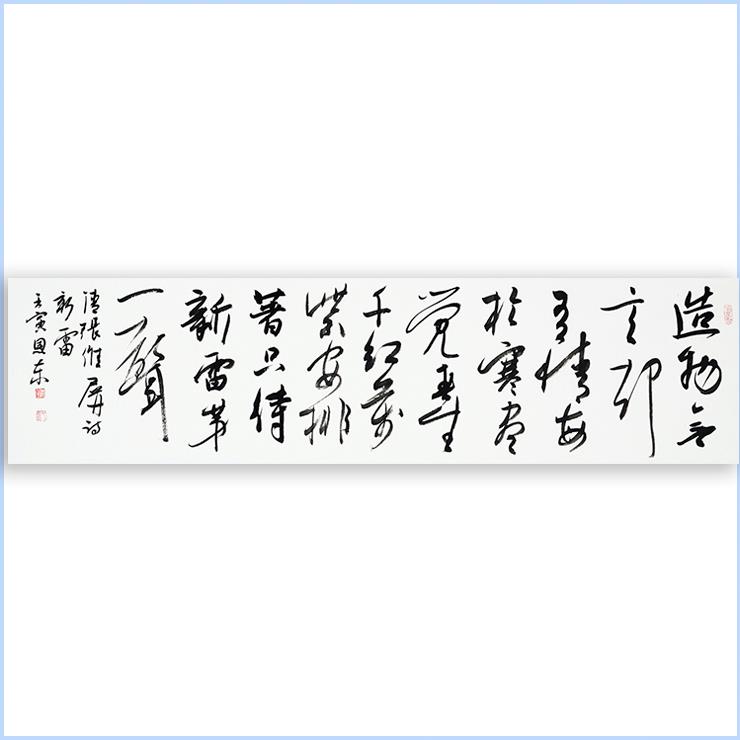 造物无
言却
有情每
於寒尽
觉春生
千红万
紫安排
著只待
新雷第
一聲
清张维屏诗
新雷
壬寅恩东